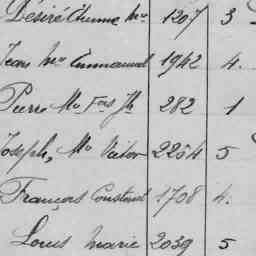 Désiré Etienne Mie 1207 3
Jean Mie Emmanuel 1942 4.
Pierre Mie Fois Jh 282 1
Joseph, Mie Victor 2254 5
François Constant 1708 4.
Louis Marie 2039 5